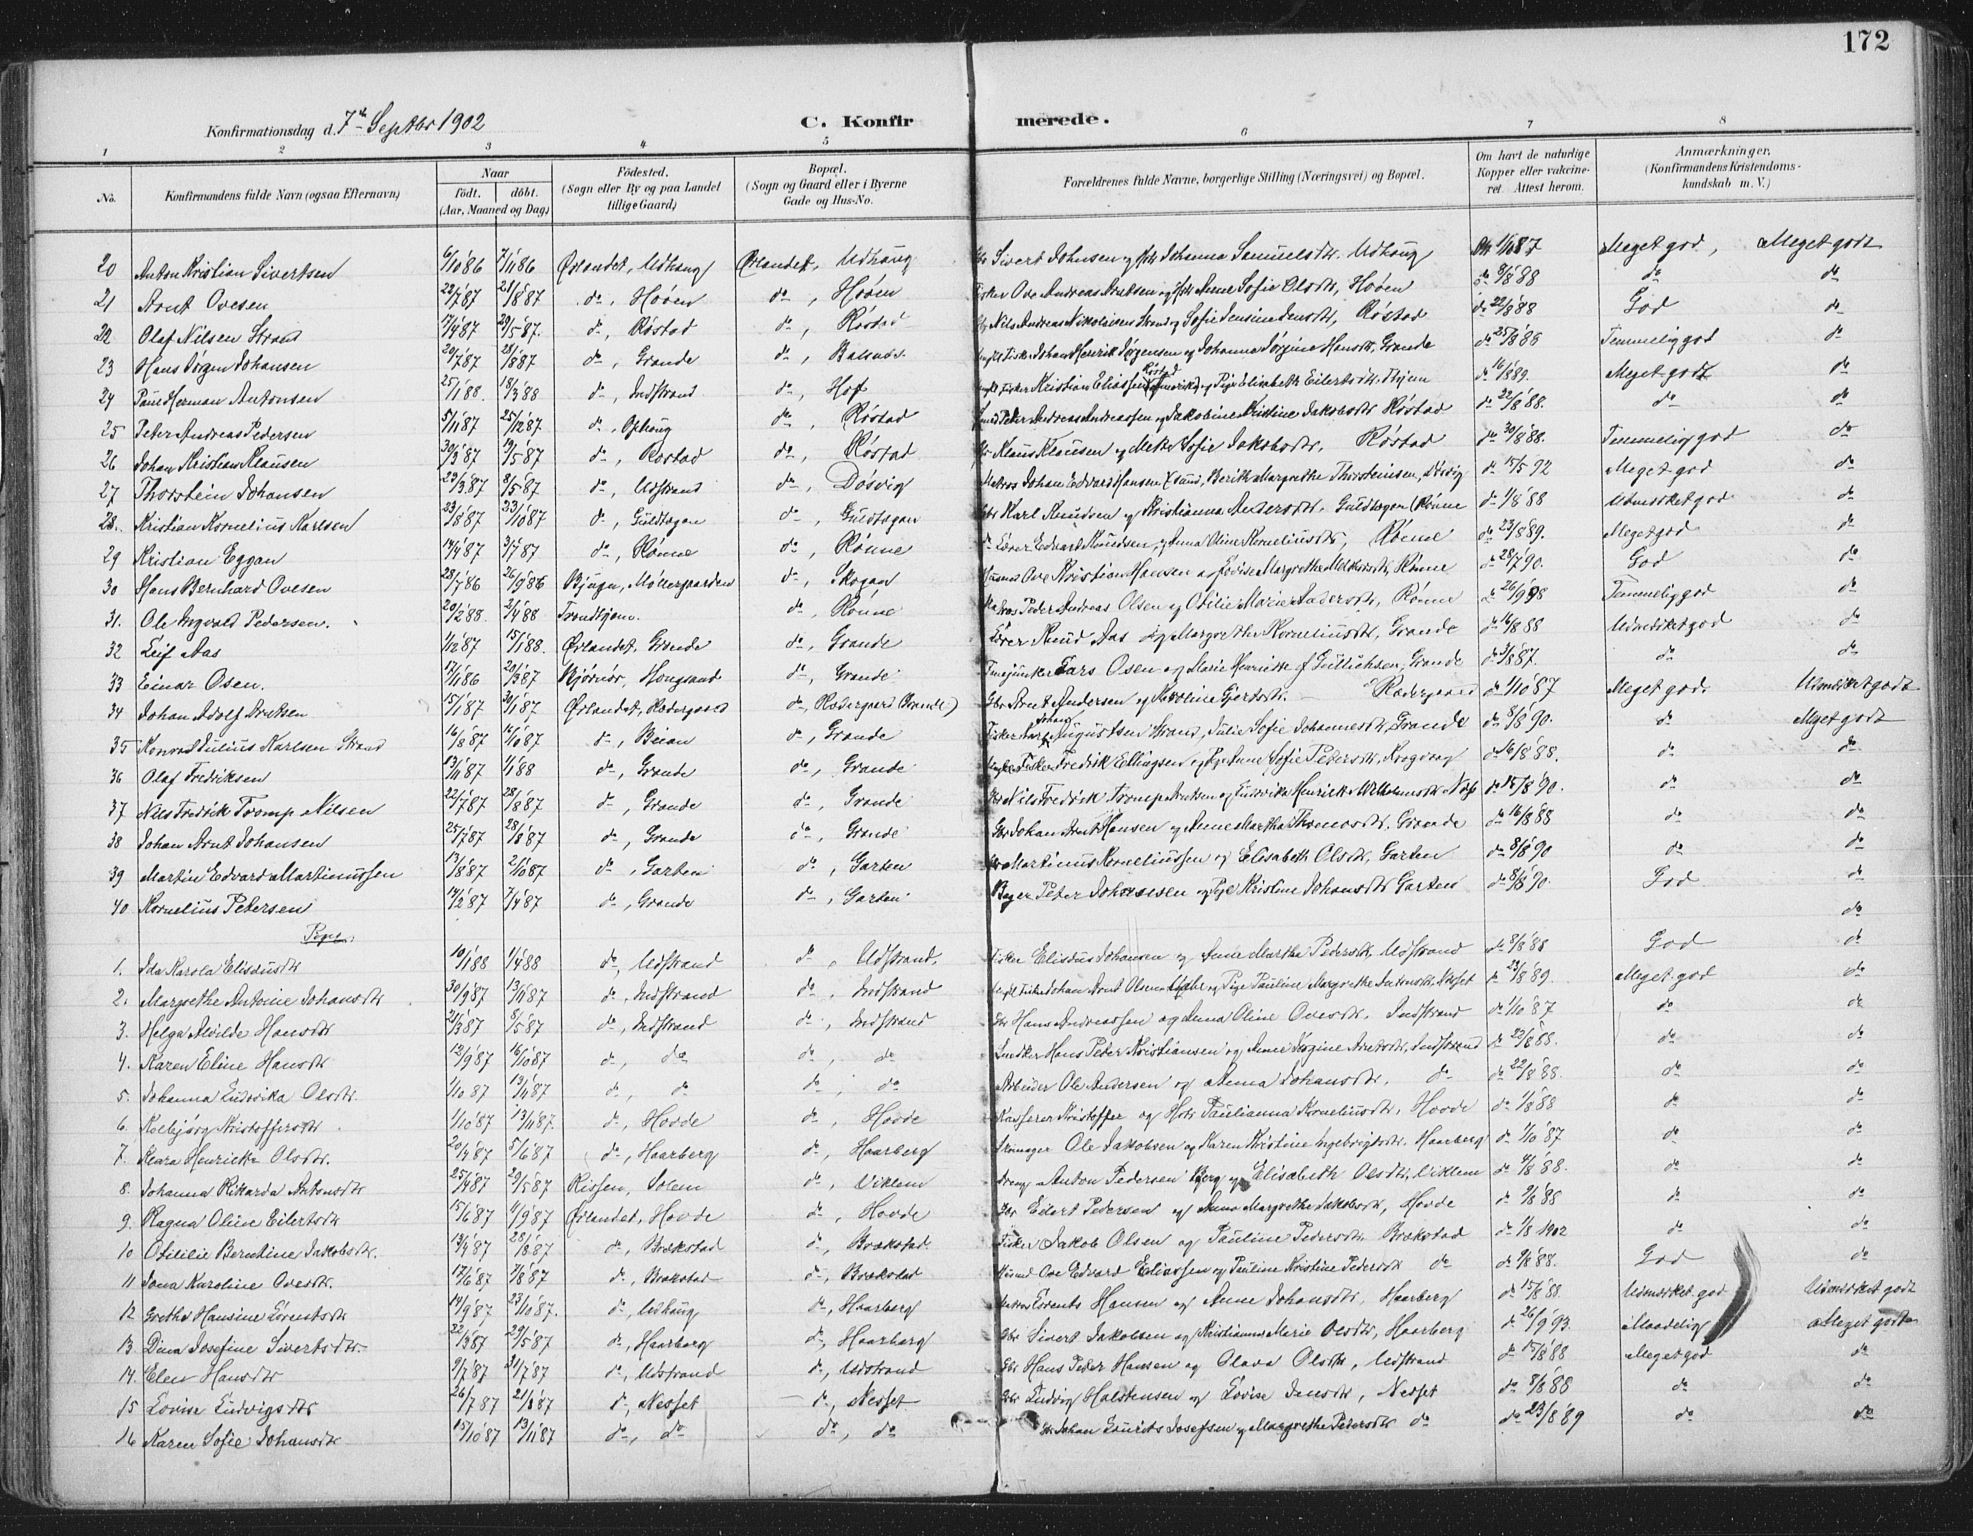 172
Konfirmationsdag d. 7de Septbr 1902 C. Konfirmerede.
1 2 3 4 5 6 7 8
No. Konfirmandens fulde Navn (ogsaa Efternavn) Naar født. døbt. (Aar, Maaned og Dag) Födested. (Sogn eller By og paa Landet tillige Gaard) Bopæl. (Sogn og Gaard eller i Byerne Gade og Hus-No. Forældrenes fulde Navne, borgerlige Stilling (Næringsvei) og Bopæl. Om havt de naturlige Kopper eller vakcineret. Attest herom. Anmærkninger. (Konfirmandens Kristendomskundskab m. V.)
20 Anton Kristian Sivertsen 6/10 86 7/11 86 Ørlandet, Udhaug Ørlandet, Udhaug Sivert Johnsen og Johanna Samuelsdtr. Udhaug 1/10 87 Meget god, Meget godt
21 Arnt Ovesen 22/7 87 21/8 87 do, Hoøen do, Hoøen Fisker Ove Andreas Arntsen og Anne Sofie Olsdtr, Hoøen do 8/8 88 do do
22 Olaf Nilsen Strand 17/4 87 29/5 87. do, Røstad do, Røstad Nils Andreas Nikolaisen Strand og Sofie Jensine Jensdtr, Røstad do 22/8 88 God do
23 Hans Jørgen Johansen 20/7 87 28/8 87 do, Grande do, Balsnes. Fisker Johan Henrik Jørgensen og Johanna Jørgine Hansdtr, Grande do 25/8 88 Temmelig god do
24 Paul Herman Antonsen 25/1 88. 18/3 88 do, Indstrand do, Hof Fisker Kristian Eliassen Røstad (Amerika) og Pige Elisabeth Eilertsdtr. do 16/8 89. Meget god do
25 Peter Andreas Pedersen 5/11 87 25/12 87 do, Ophaug do, Røstad Peder Andreas Andreassen og Jakobine Kristine Jakobsdtr Røstad do 22/8 88. do do
26 Johan Kristian Klausen 30/3 87 19/5 87 do, Røstad do, Røstad Klaus Klausen og Mette Sofie Jakobsdtr. Røstad do 30/8 88. Temmelig god do
27 Thorstein Johansen 22/3 87 8/5 87 do, Udstrand do, Døsvig Matros Johan Edvard Hansen, Berit Margrethe Thorsteinsen, Døsvig do 15/5 92 Meget god do
28. Kristian Kornelius Karlsen 23/8 87 23/10 87 do, Guldtegen do, Guldtegen Karl Knudsen og Kristianna Andersdtr. Guldtegen (Rønne do 1/8 88 Udmerket god do
29 Kristian Eggan 14/4 87 3/7 87 do, Rønne do, Rønne Lærer Edvart Knudsen, og Anna Oline Korneliusdtr, Rønne do 23/8 89. Meget god do
30 Hans Bernhard Ovesen 28/7 86 26/9 86 Bjugn, Møllergaarden do, Skogan Ove Kristian Hansen og Lovise Margrethe Rønne do 28/7 90. God do
31. Ole Ingvald Pedersen. 20/2 88 2/4 88 Trondhjem. do, Rønne Peder Andreas Olsen og Otilie Marie Andersdtr, Rønne do 26/9 98 Temmelig god do
32 Leif Aas 1/12 87 15/1 88. Ørlandet, Grande do, Grande Lærer Knud Aas og Margrethe Korneliusdtr, Grande do 16/8 88 Udmerket god do
33 Einar Osen. 17/11 86 20/3 87 Bjørnør, Hongsand do, Grande Lars Osen og Marie Henrikke f Gullichsen, Grande do 3/8 87. do do
34 Johan Adolf Arntsen 15/1 87 30/1 87 Ørlandet, Rædergaard do, Rædergaard (Grande) Arnt Andersen og Karoline Gjertsdtr. Rædergaard do 1/10 87 Meget god. Udmerket godt
35 Konrad Julius Karlsen Strand 16/8 87 16/10 87 do, Beian do, Grande Fisker Karl Johan Augustsen Strand, Julie Sofie Johannesdtr, Grande do 8/8 90. do Meget godt
36 Olaf Fredriksen 13/11 87 1/1 88 do, Grande do, Grande Fisker Fredrik Ellingsen og Anne Sofie Pedersdtr, Krogvaag do 16/8 88. do do
37 Nils Fredrik Tromp Nilsen 22/7 87 28/8 87 do, Grande do, Grande Nils Fredrik Tromp Arntsen og Ludvikke Henrikke Wilhelmsdtr do 15/8 90. do do
38 Johan Arnt Johansen 25/7 87 28/8 87 do, Grande do, Grande Gbr Johan Arnt Hansen og Anne Martha Thomasdtr, Grande do 16/8 88 do do
39 Martin Edvard Martinussen 13/8 87 2/10 87 do, Garten do, Garten Martinus Korneliussen og Elisabeth Olsdtr, Garten do 8/8 90 do do
40 Kornelius Petersen 14/2 87 7/4 87 do, Grande do, Garten Bager Peter Johansen og Pige Kristine Johansdtr Garten do 8/8 90. God do
Piger. do
1. Ida Karola Elisdusdtr 10/1 88 1/4 88 do, Udstrand do, Udstrand, Fisker Elisdus Johansen og Anne Martha Pedersdtr, Udstrand do 8/8 88 God do
2. Margrethe Antoine Johansdtr 30/9 87 13/11 87 do, Indstrand do, Indstrand Johan Arnt Olsen og Pige Pauline Margrethe Antonsdtr, Nesset do 23/8 89. Meget god do
3. Helga Alvilde Hansdtr 21/3 87 8/5 87 do, Indstrand do, Indstrand Hans Andreassen og Anna Oline Ovesdtr. Indstrand do 1/10 87 do do
4. Karen Eline Hansdtr 12/9 87 16/10 87 do, do do, do Hans Peter Kristiansen og Anne Jørgine Arntsdtr, Indstrand do 22/8 88. do do
5. Johanna Ludvika Olsdtr. 1/10 87 13/11 87 do, do do, do Arbeider Ole Andersen og Anna Johansdtr. do do 22/8 88 do do
6. Kolbjørg Kristoffersdtr 1/10 87 13/11 87. do, Hovde do, Hovde Kristoffer og Paulianna Korneliusdtr, Hovde do 1/8 88 do do
7. Klara Henrikke Olsdtr. 20/4 87 5/6 87 do, Haarberg do, Haarberg Skomager Ole Jakobsen og Karen Kristine Ingebrigtsdtr. Haarberg do 1/10 87 do do
8. Johanna Rikarda Antonsdtr 25/4 87 29/5 87 Rissen, Solem do, Viklem Anton Pedersen Berg og Elisabeth Olsdtr, Viklem do 4/8 88. do do
9. Ragna Oline Eilertsdtr 15/6 87 4/9 87 Ørlandet, Hovde do, Hovde Eilert Pedersen og Anne Margrethe Jakobsdtr, Hovde do 9/8 88 do do
10 Otilie Berntine Jakobsdtr. 13/4 87 28/8 87 do, Brækstad do, Brækstad Fisker Jakob Olsen og Pauline Pedersdtr. Brækstad do 1/8 1902 do do
11 Jona Karoline Ovesdtr. 17/6 87 7/8 87 do, Brækstad do, Brækstad Ove Edvard Eliassen og Pauline Kristine Pedersdtr do do 9/8 88. God do
12 Grethe Hansine Lorentsdtr 14/9 87 23/10 87. do, Udhaug do, Haarberg Matros Lorents Hansen og Anne Johansdtr, Haarberg do 15/8 88. Udmerket god Udmerket godt
13 Dina Josefine Sivertsdtr 22/3 87 29/5 87 do, Haarberg do, Haarberg Gbr Sivert Jakobsen og Kristianna Marie Olsdtr, Haarberg do 26/9 93. Maadelig Meget godt
14. Elen Hansdtr 9/7 87 31/7 87 do, Udstrand do, Udstrand Gbr Hans Peder Hansen og Olava Olsdtr, Udstrand do 15/8 88 Meget god do
15 Lovise Ludvigsdtr 26/7 87 21/8 87 do, Nesset do, Nesset Gbr Ludvig Halstensen og Lovise Jensdtr, Nesset do 8/8 88 do do
16 Karen Sofie Johansdtr 15/10 87 13/11 87 do, do do, do Johan Lourits Josefsen og Margrethe Pedersdtr do do 23/8 89 do do